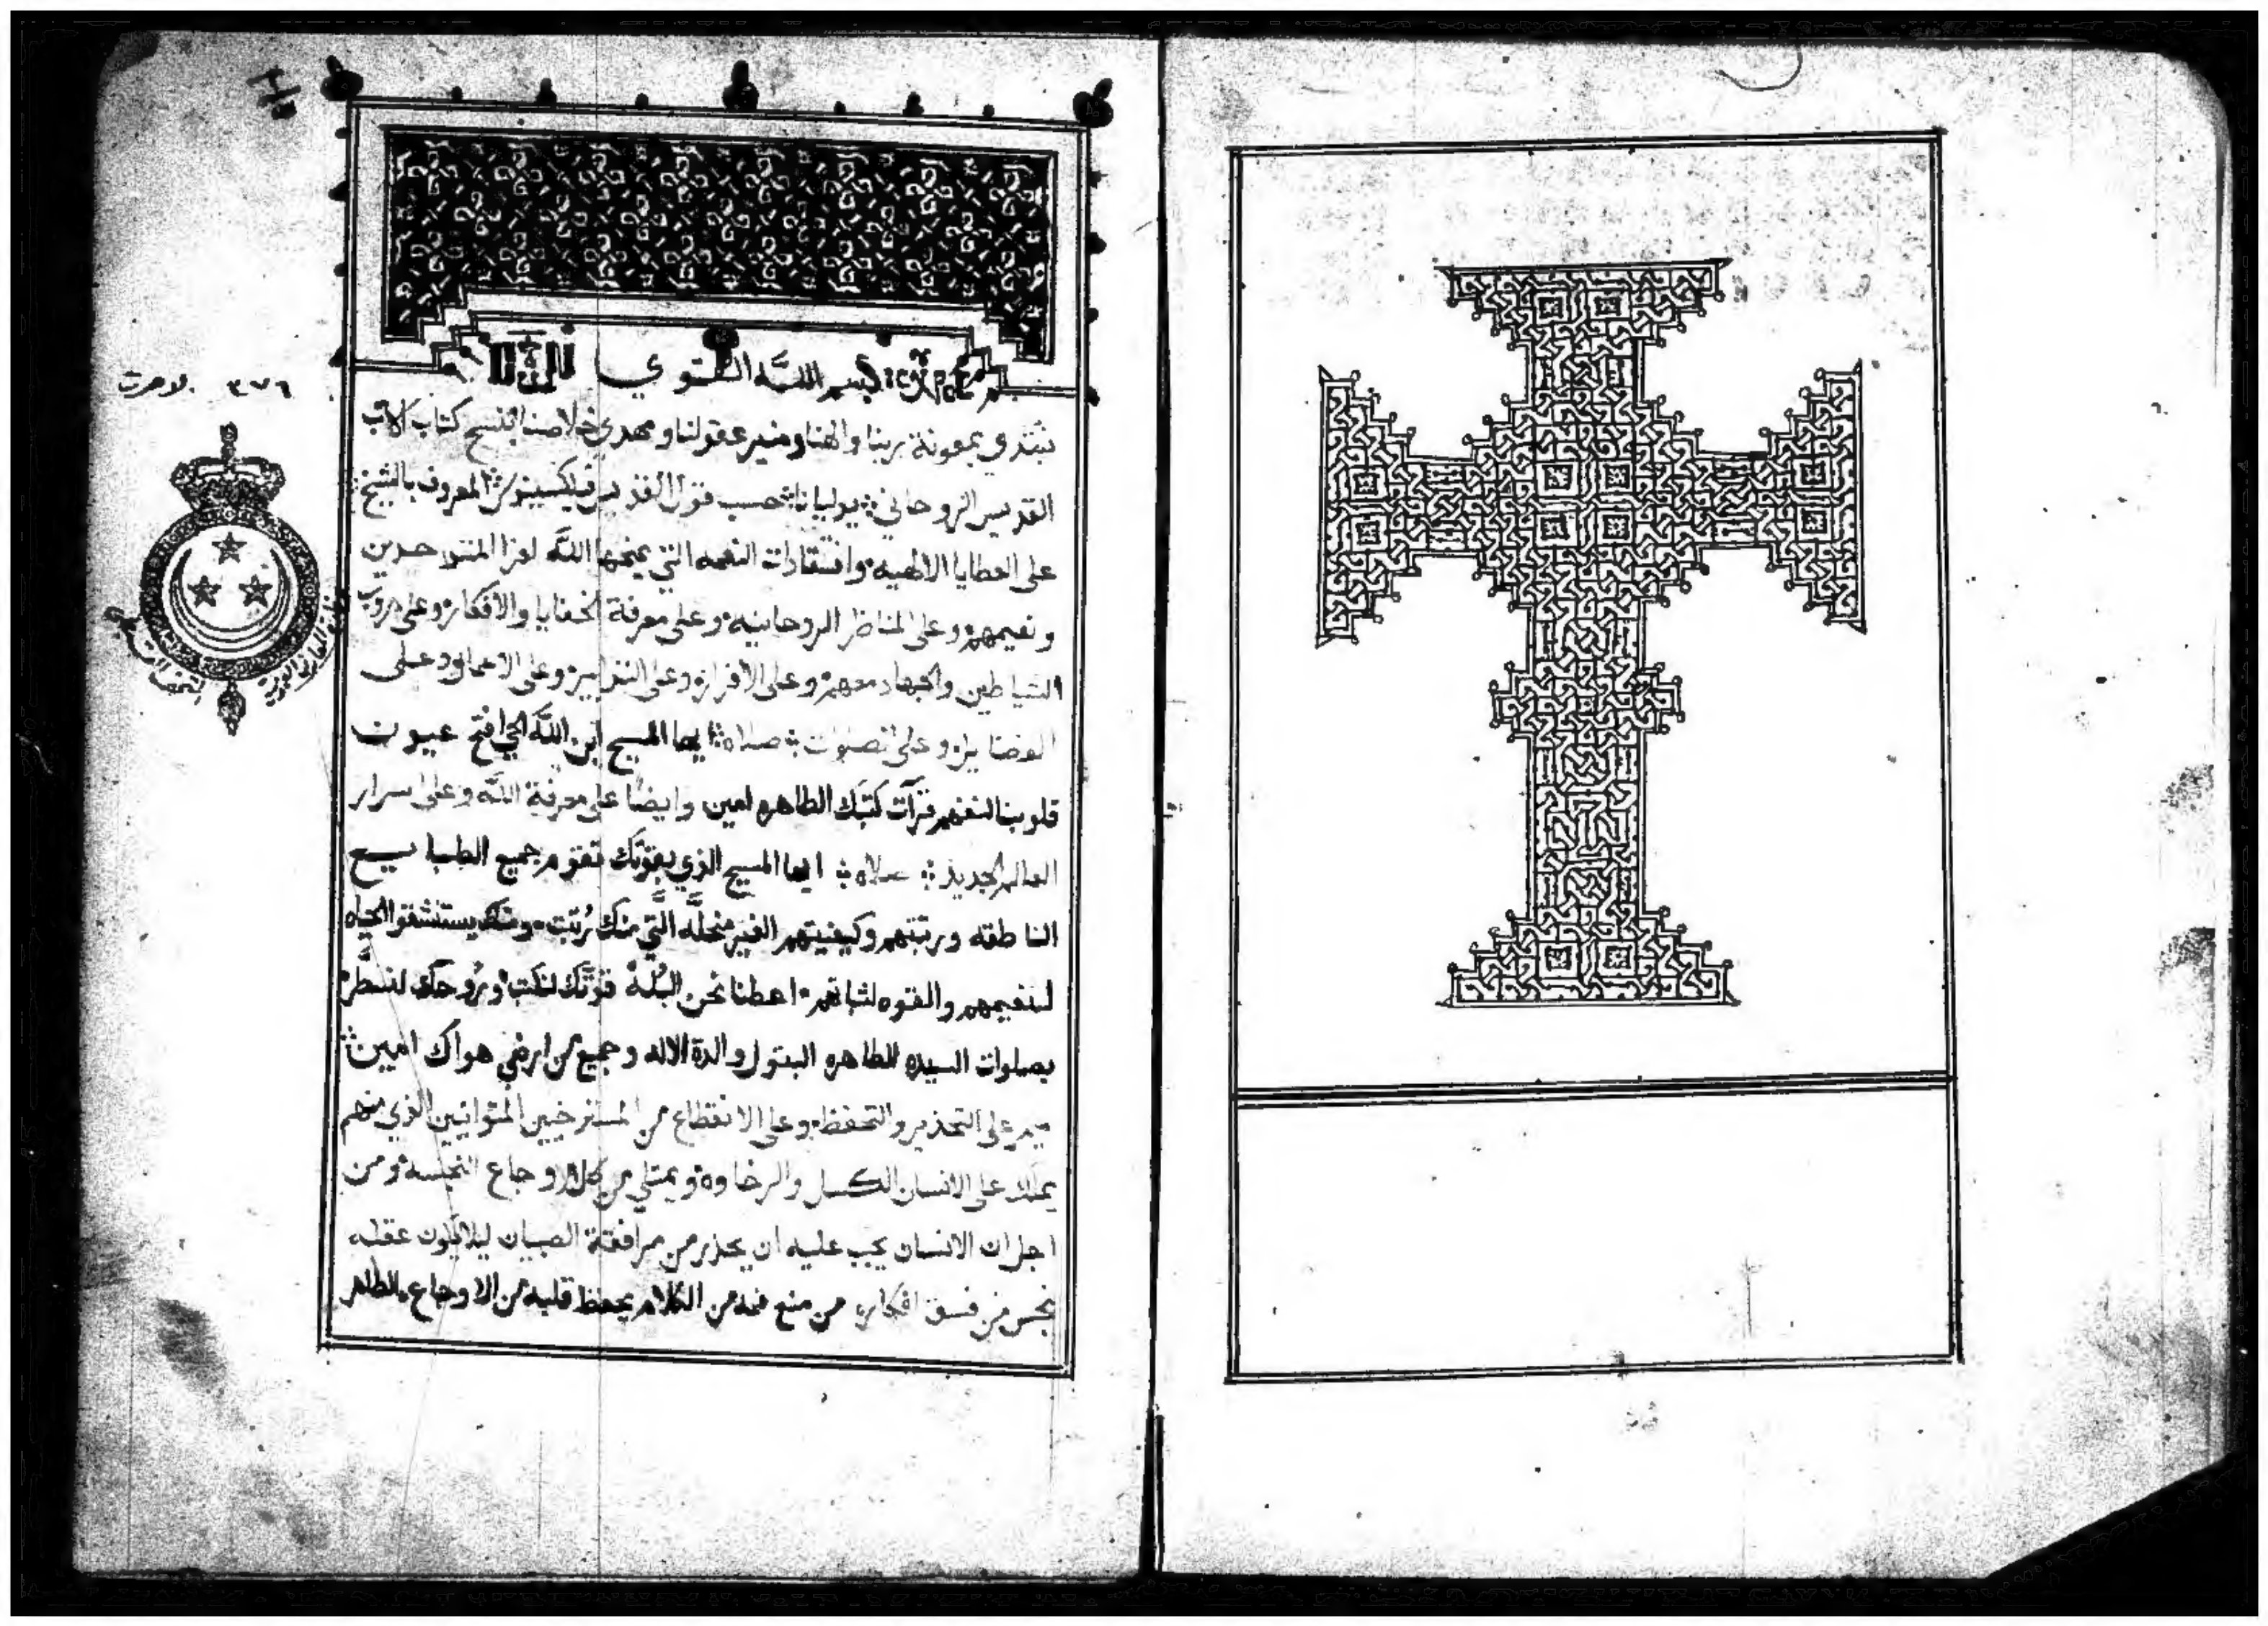 بسم الله القوي
نبتدي بمعونة ربنا والهنا ومنير عقولنا ومهدي خلاصنا بنسخ كتاب الاب
القديس الروحاني يوليانا حسب قول القديس فيلكسينوس المعروف بالشيخ
على العطايا الالهيه وافتقادات النعمه التي يمنحها الله لعزا المتوحدين
ونعيمهم وعلى المناظر الروحانيه وعلى معرفة الخفايا والافكار وعلى حروب
الشياطين والجهاد معهم وعلى الافراز وعلى التدابير وعلى الاعمال وعلى
الفضايل وعلى صلاه ايها المسيح ابن الله الحي افتح عيون
قلوبنا لنفهم قرآت كتبك الطاهره امين وايضا على معرفة الله وعلى اسرار
العالم الجديد صلاه ايها المسيح الذي بقوتك تقوم جميع الطبايع
الناطقه ورتبتهم وكيفيتهم الغير منحله التي منك رُتبت ومنك يستنشقوا الحياه
لنعيمهم والقوه لثباتهم اعطنا نحن البُله قوتك لنكتب وروحك لنسطر
بصلوات السيده الطاهره البتول والدة الاله وجميع من ارضى هواك امين
ميمر على التحذير والتحفظ وعلى الانقطاع من المسترخيين المتوانيين الذي منهم
يملك على الانسان الكسل والرخاوه ويمتلي من كل الاوجاع النجسه ومن
اجل ان الانسان يجب عليه ان يحذر من مرافقة الصبيان ليلا يكون عقله
نجس من فسق افكاره من منع فمه من الكلام يحفظ قلبه من الاوجاع الطاهر
٣٧٦ لاهوت